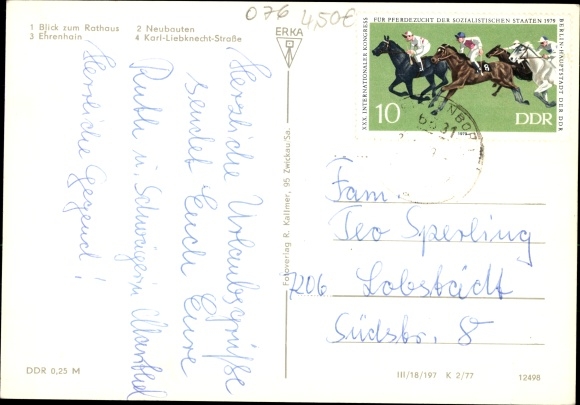 076 4,50€
1 Blick zum Rathaus 2 Neubauten
3 Ehrenhain 4 Karl-Liebknecht-Straße
ERKA
XXX. INTERNATIONALER KONGRESS
FÜR PFERDEZUCHT DER SOZIALISTISCHEN STAATEN 1979
BERLIN-HAUPTSTADT DER DDR
8
10
DDR
1979
Herzliche Urlaubsgrüße
sendet Euch Eure
Ruth u. Schwägerin
Herrliche Gegend!
Fotoverlag R. Kallmer, 95 Zwickau/Sa.
Fam.
Teo Sperling
7206 Lobstädt
Südstr. 8
DDR 0,25 M
III/18/197 K 2/77
12498